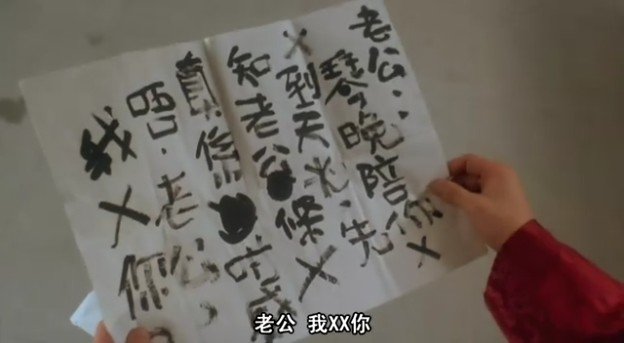 老公：
琴晚陪你X
X到天光，先
知老公條X
真係
唔，老公，
我X你。
老公 我XX你